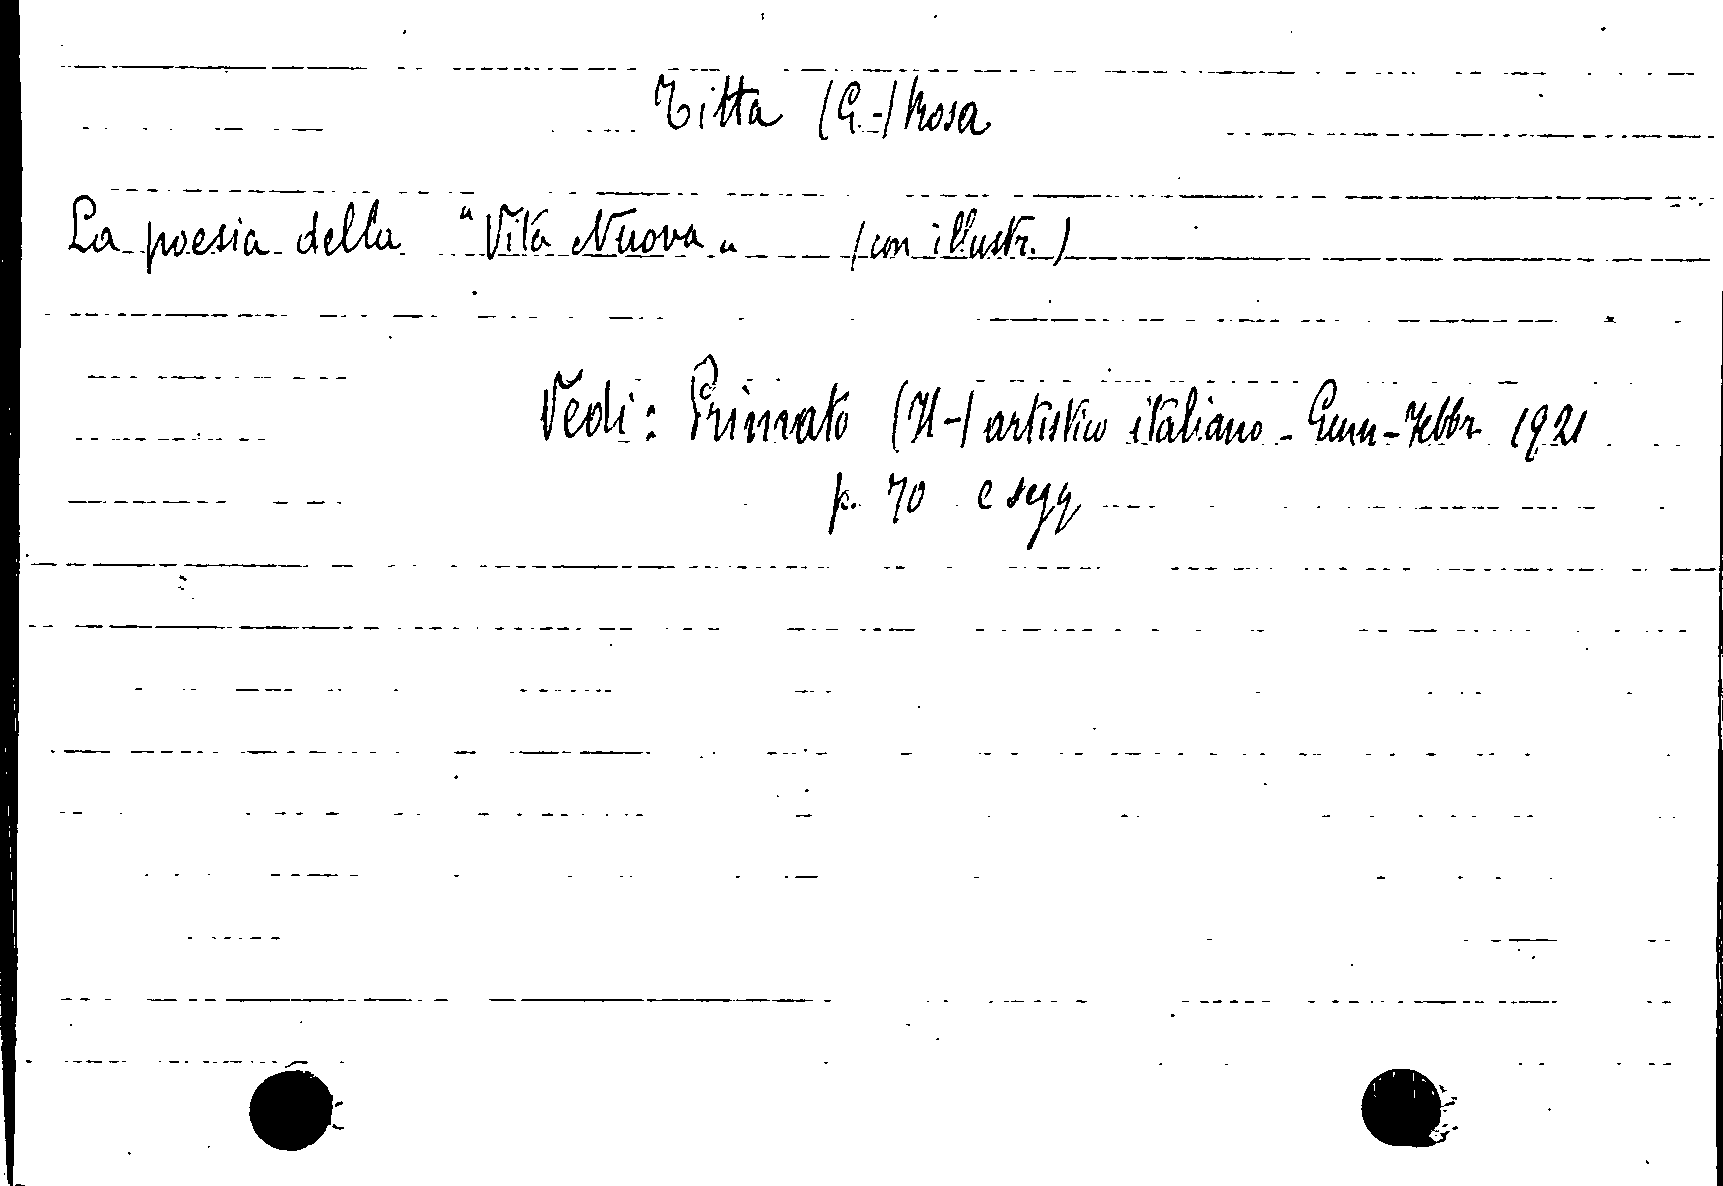 Titta (G.-) Rosa
La poesia della "Vita Nuova" (con illustr.)
Vedi: Primato (Il-) artistico italiano - Genn-Febbr 1921
p. 70 e segg